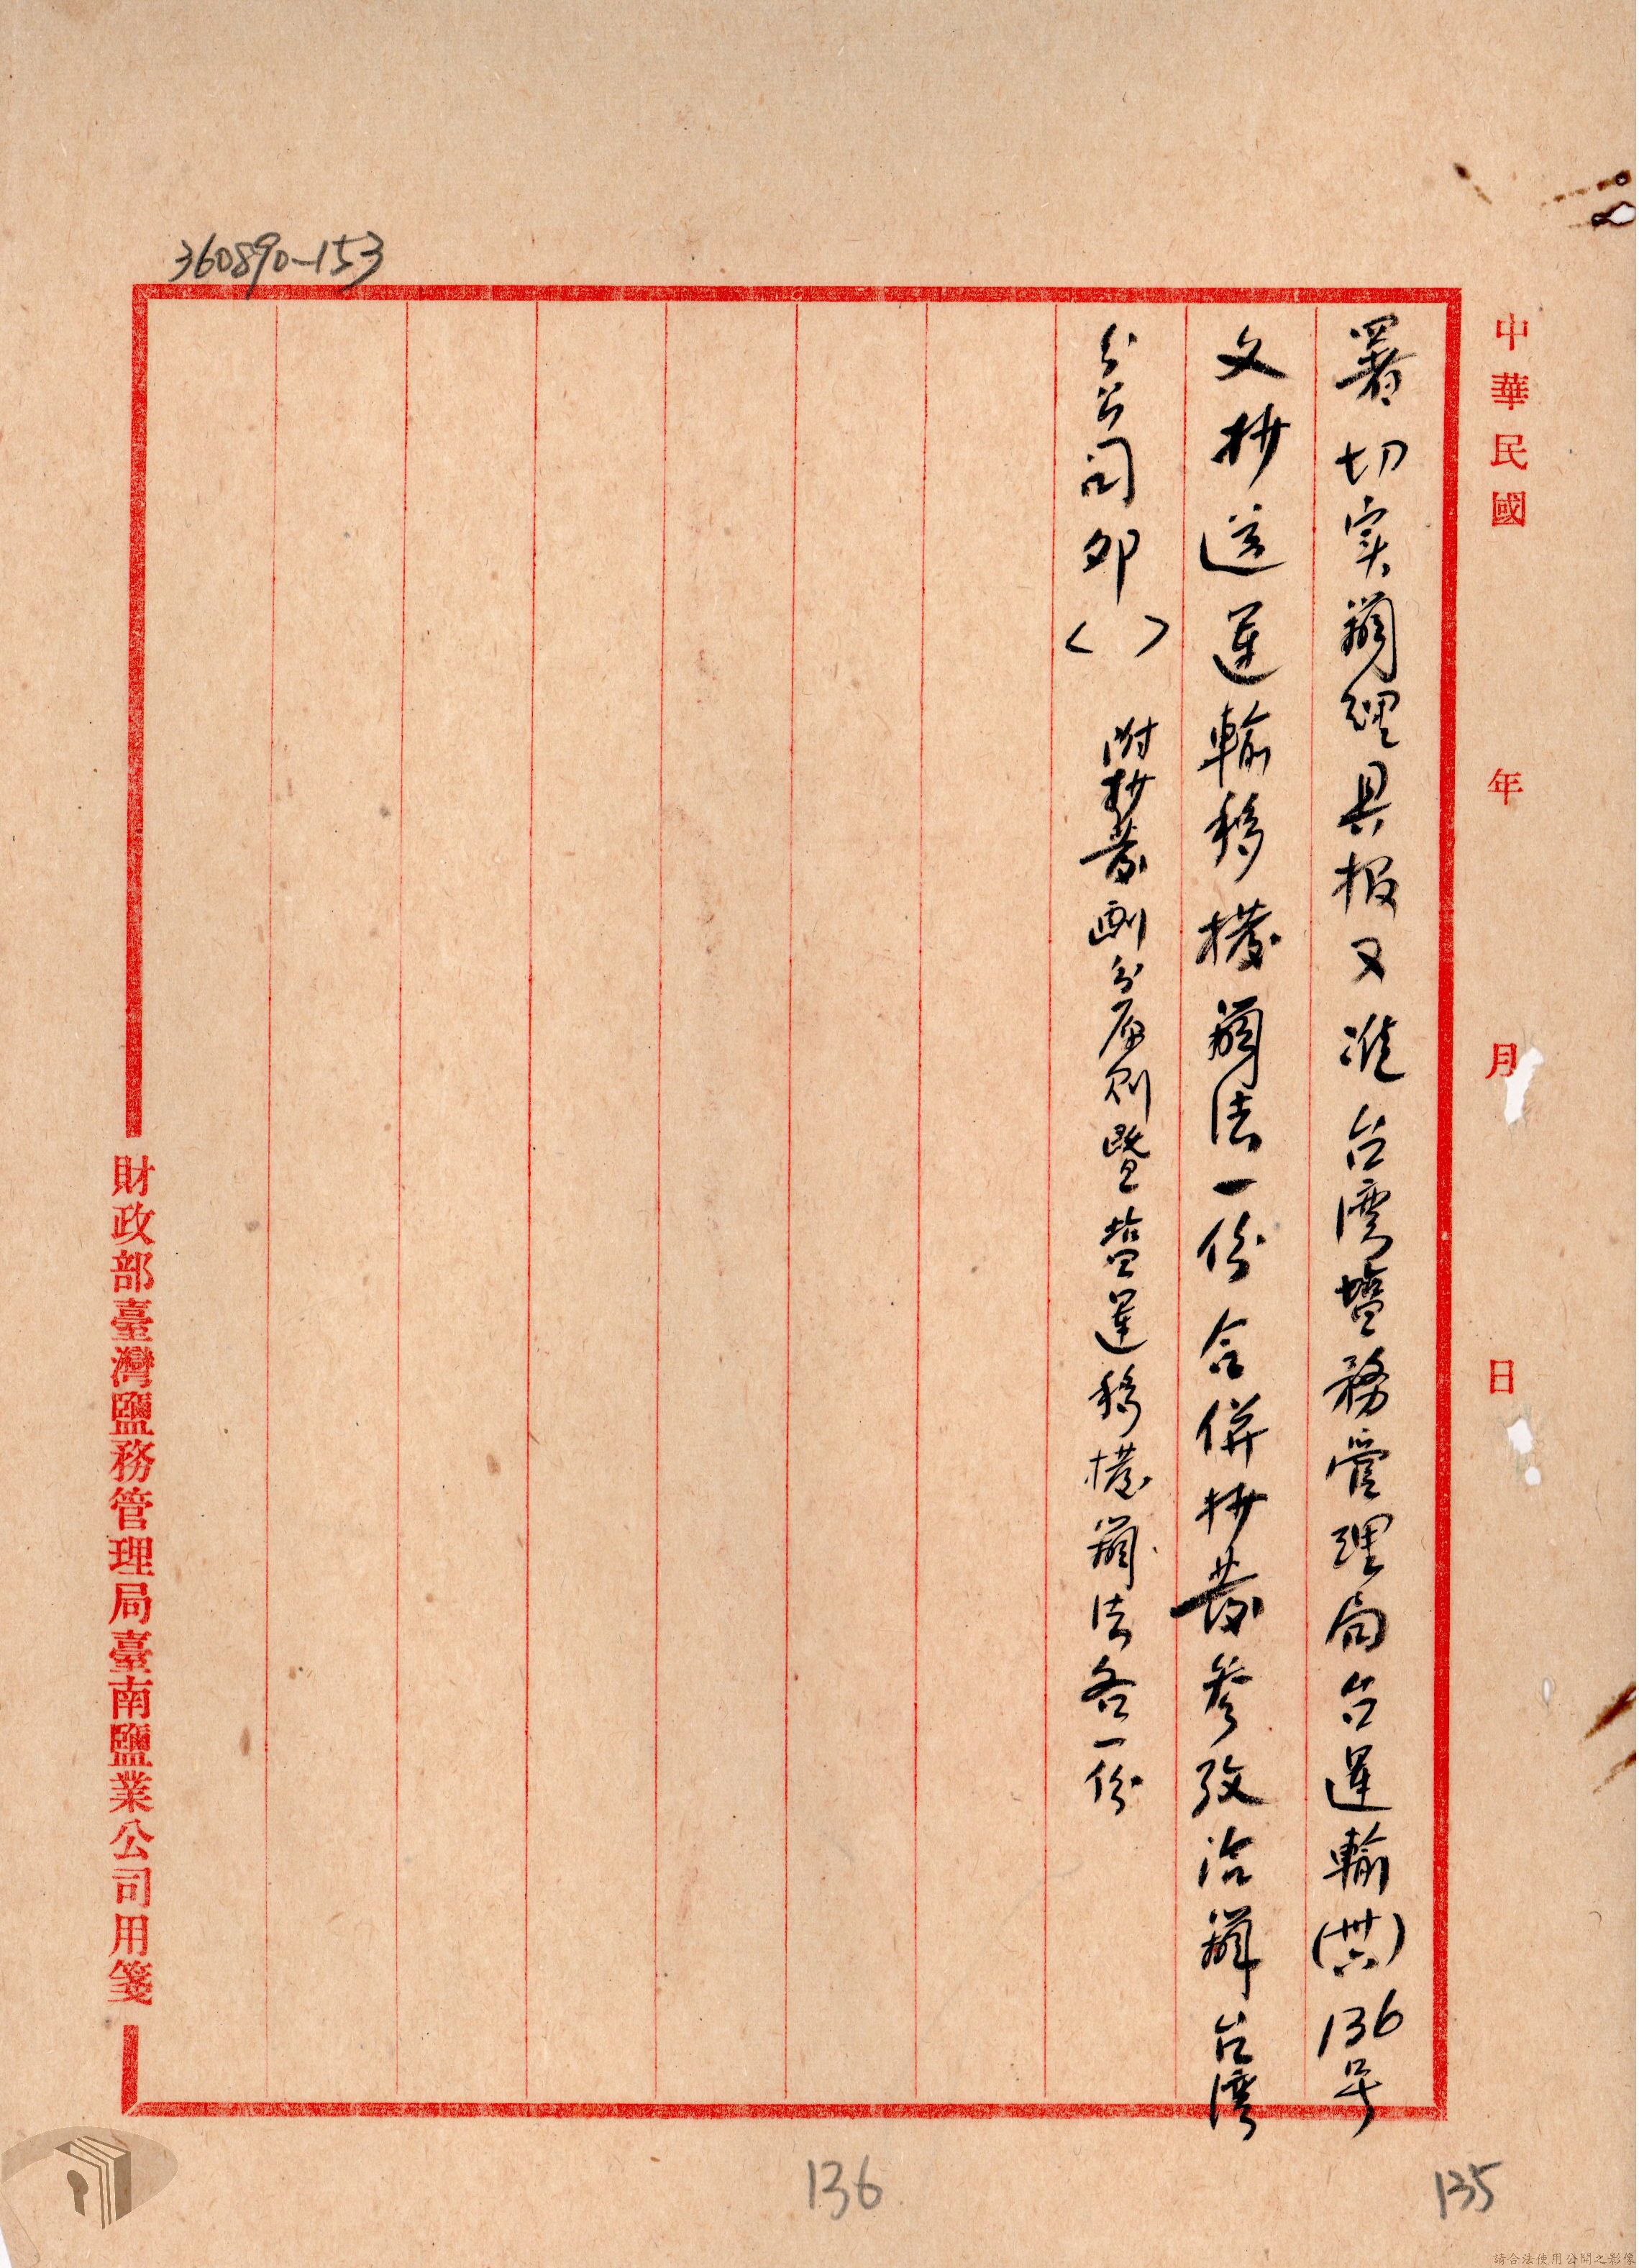 360890-153
中華民國 年 月 日
署切实辦理具报又准台湾塩務管理局台運輸(卅六)136号
文抄送運輸移撥辦法一份合併抄發参攷洽辦台湾
分公司卯〈 〉 附抄發劃分原則暨盐運移撥辦法各一份
財政部臺灣鹽務管理局臺南鹽業公司用箋
136
135
請合法使用公開之影像